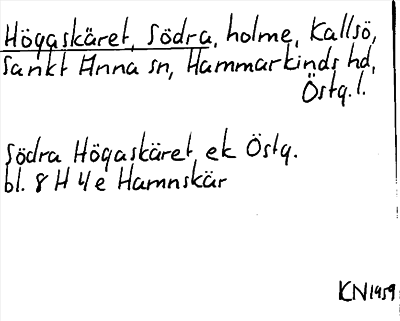 Högaskäret, Södra, holme, Kallsö,
Sankt Anna sn, Hammarkinds hd,
Östg. l.
Södra Högaskäret, ek Östg.
bl. 8 H 4 e Hamnskär
KN 1959